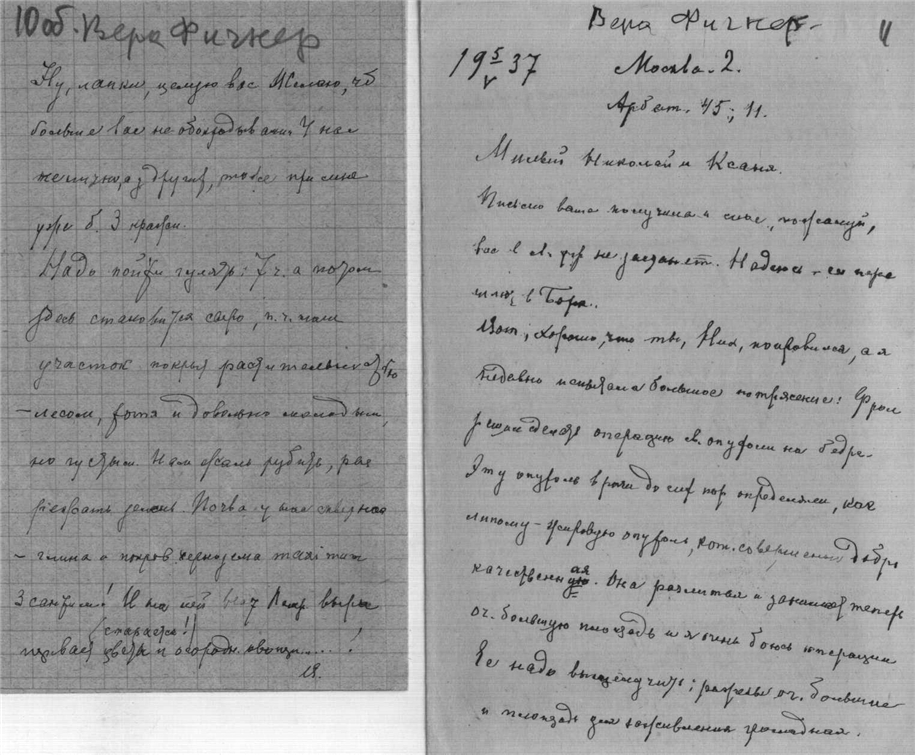 10 об. Вера Фигнер
Ну, лапки, целую вас. Желаю, чтб
больше вас не обокрадывали. У нас
не лично, а у других, тоже при мне
уже б. 3 кражи.
Надо пойти гулять: 7 ч. а потом
здесь становится сыро, п. ч. наш
участок покрыт растительностью
– лесом, хотя и довольно молодым,
но густым. Нам жаль рубить, рас
зелень. Почва у нас скверная
– глина и покров чернозема
3 сантим! И на ней
(старается!)
цветы и огородн. овощи....!
В.
Вера Фигнер. 11
19 5/V 37 Москва. 2.
Арбат. 45; 11.
Милый Николай и Ксаня.
Письмо ваше получила и мое, пожалуй,
вас в не застанет. Надеюсь – его пере
шлют в Боры.
Вот, хорошо, что ты, Ник, поправился, а я
недавно испытала большое потрясение: Фрол
решил сделать операцию опухоли на бедре.
Эту опухоль врачи до сих пор определяли, как
липому – жировую опухоль, кот. совершенно добро
качественная. Она разлитая и занимает теперь
оч. большую площадь и я очень боюсь операции
Ее надо вышелушить; разрезы оч. большие
и площадь для заживления громадная.